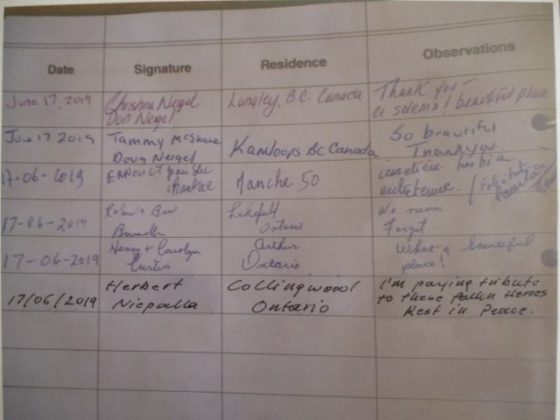 Date Signature Residence Observations
June 17, 2019 Neigel Langley, B.C. Canada Thank you -
Don Neigel a solemn / beautiful place
June 17 2019 Tammy McShane Kamloops BC Canada So beautiful
Doug Neigel Thank you
17-06-2019 Manche 50 cimetière très bien
entretenue.
17-06-2019 Lakefield We never
Ontario Forget.
17-06-2019 Henry + Carolyn Arthur What a beautiful
Curtis Ontario place!
17/06/2019 Herbert Collingwood I'm paying tribute
Niepalla Ontario to these fallen Heroes
Rest in Peace.